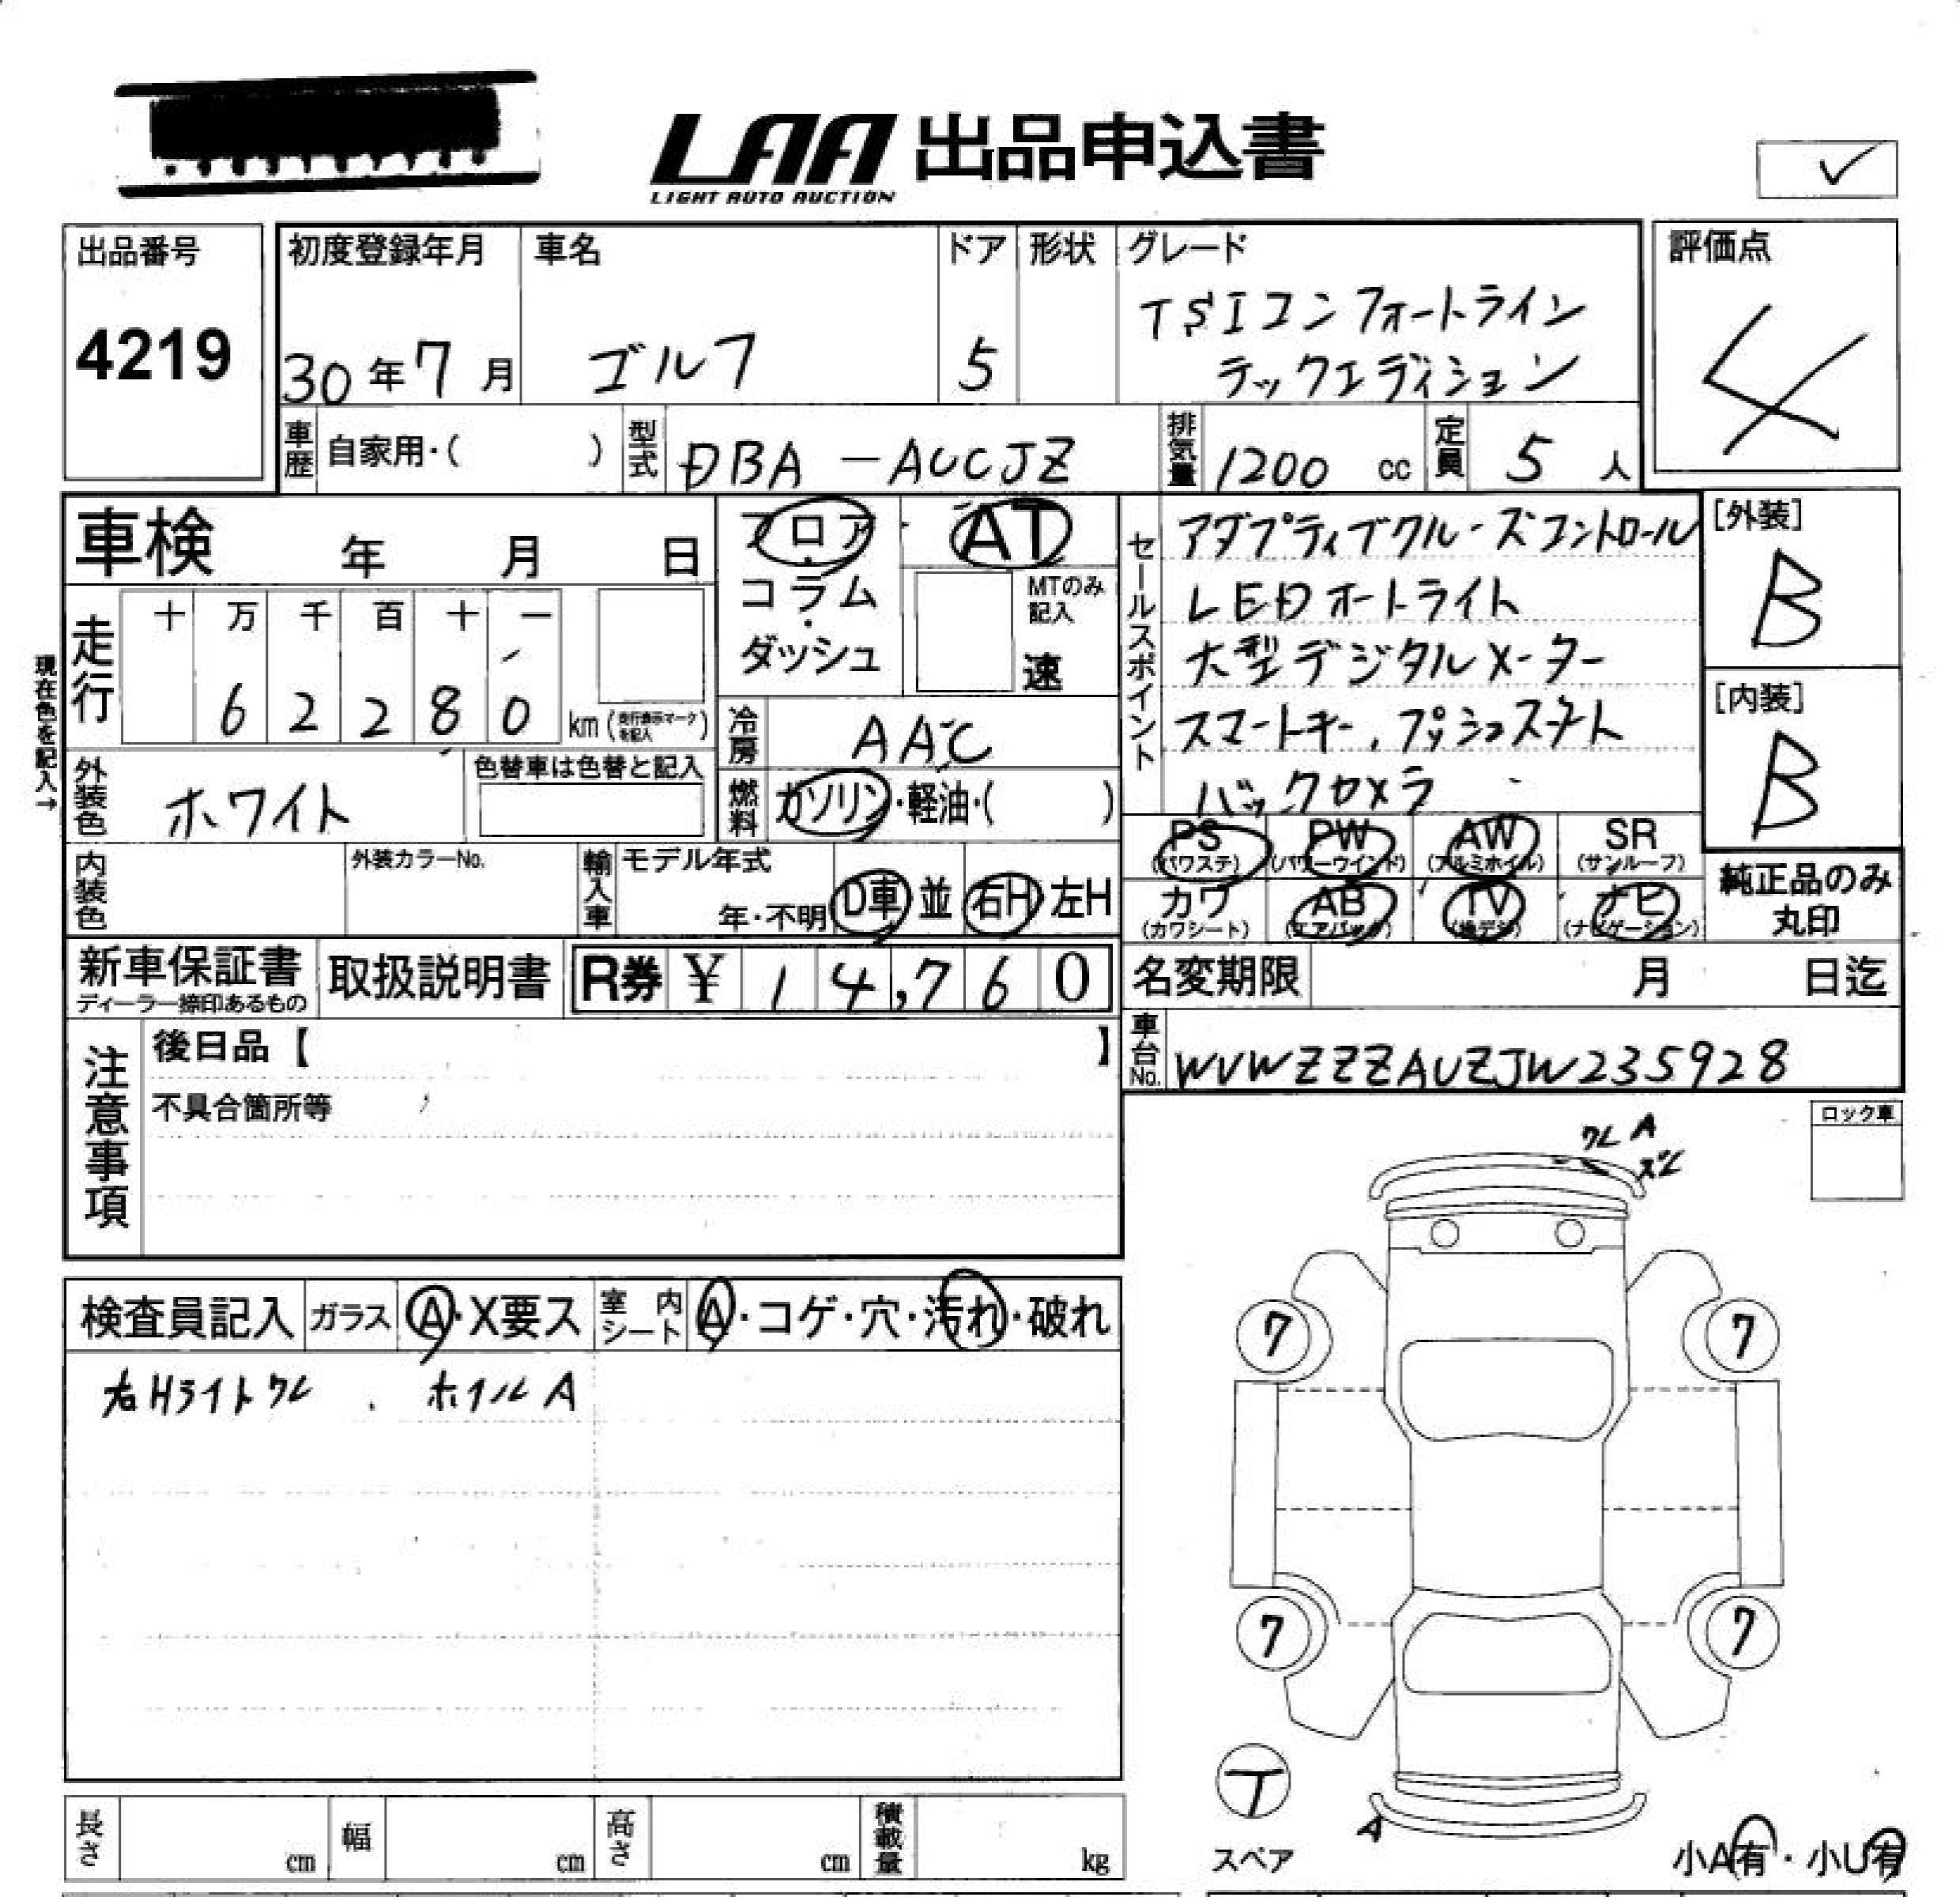 LAA 出品申込書
LIGHT AUTO AUCTION
出品番号
4219
初度登録年月
30年7月
車名
ゴルフ
ドア
5
形状
グレード
TSIコンフォートライン
テックエディション
評価点
4
車歴 自家用・( )
型式 DBA-AUCJZ
排気量 1200 cc
定員 5 人
車検 年 月 日
フロア・
コラム・
ダッシュ
AT
MTのみ記入
速
セールスポイント
アダプティブクルーズコントロール
LEDオートライト
大型デジタルメーター
スマートキー、プッシュスタート
バックカメラ
[外装]
B
[内装]
B
現在色を記入→
走行
十 万 千 百 十 一
6 2 2 8 0
km (走行表示マークを記入)
冷房 AAC
外装色 ホワイト
色替車は色替と記入
燃料 ガソリン・軽油・( )
PS (パワステ)
PW (パワーウインド)
AW (アルミホイル)
SR (サンルーフ)
カワ (カワシート)
AB (エアバック)
TV (地デジ)
ナビ (ナビゲーション)
純正品のみ
丸印
内装色
外装カラーNo.
輸入車 モデル年式
年・不明
D車 並 右H 左H
新車保証書
ディーラー捺印あるもの
取扱説明書
R券 ¥ 14,760
名変期限 月 日迄
車台No. WVWZZZAUZJW235928
注意事項
後日品【 】
不具合箇所等
ロック車
ワレ A
ズレ
検査員記入
ガラス A・X要ス
室内シート A・コゲ・穴・汚れ・破れ
右Hライトワレ . ホイルA
7
7
7
7
T
スペア
A
小A有・小U有
長さ cm
幅 cm
高さ cm
積載量 kg